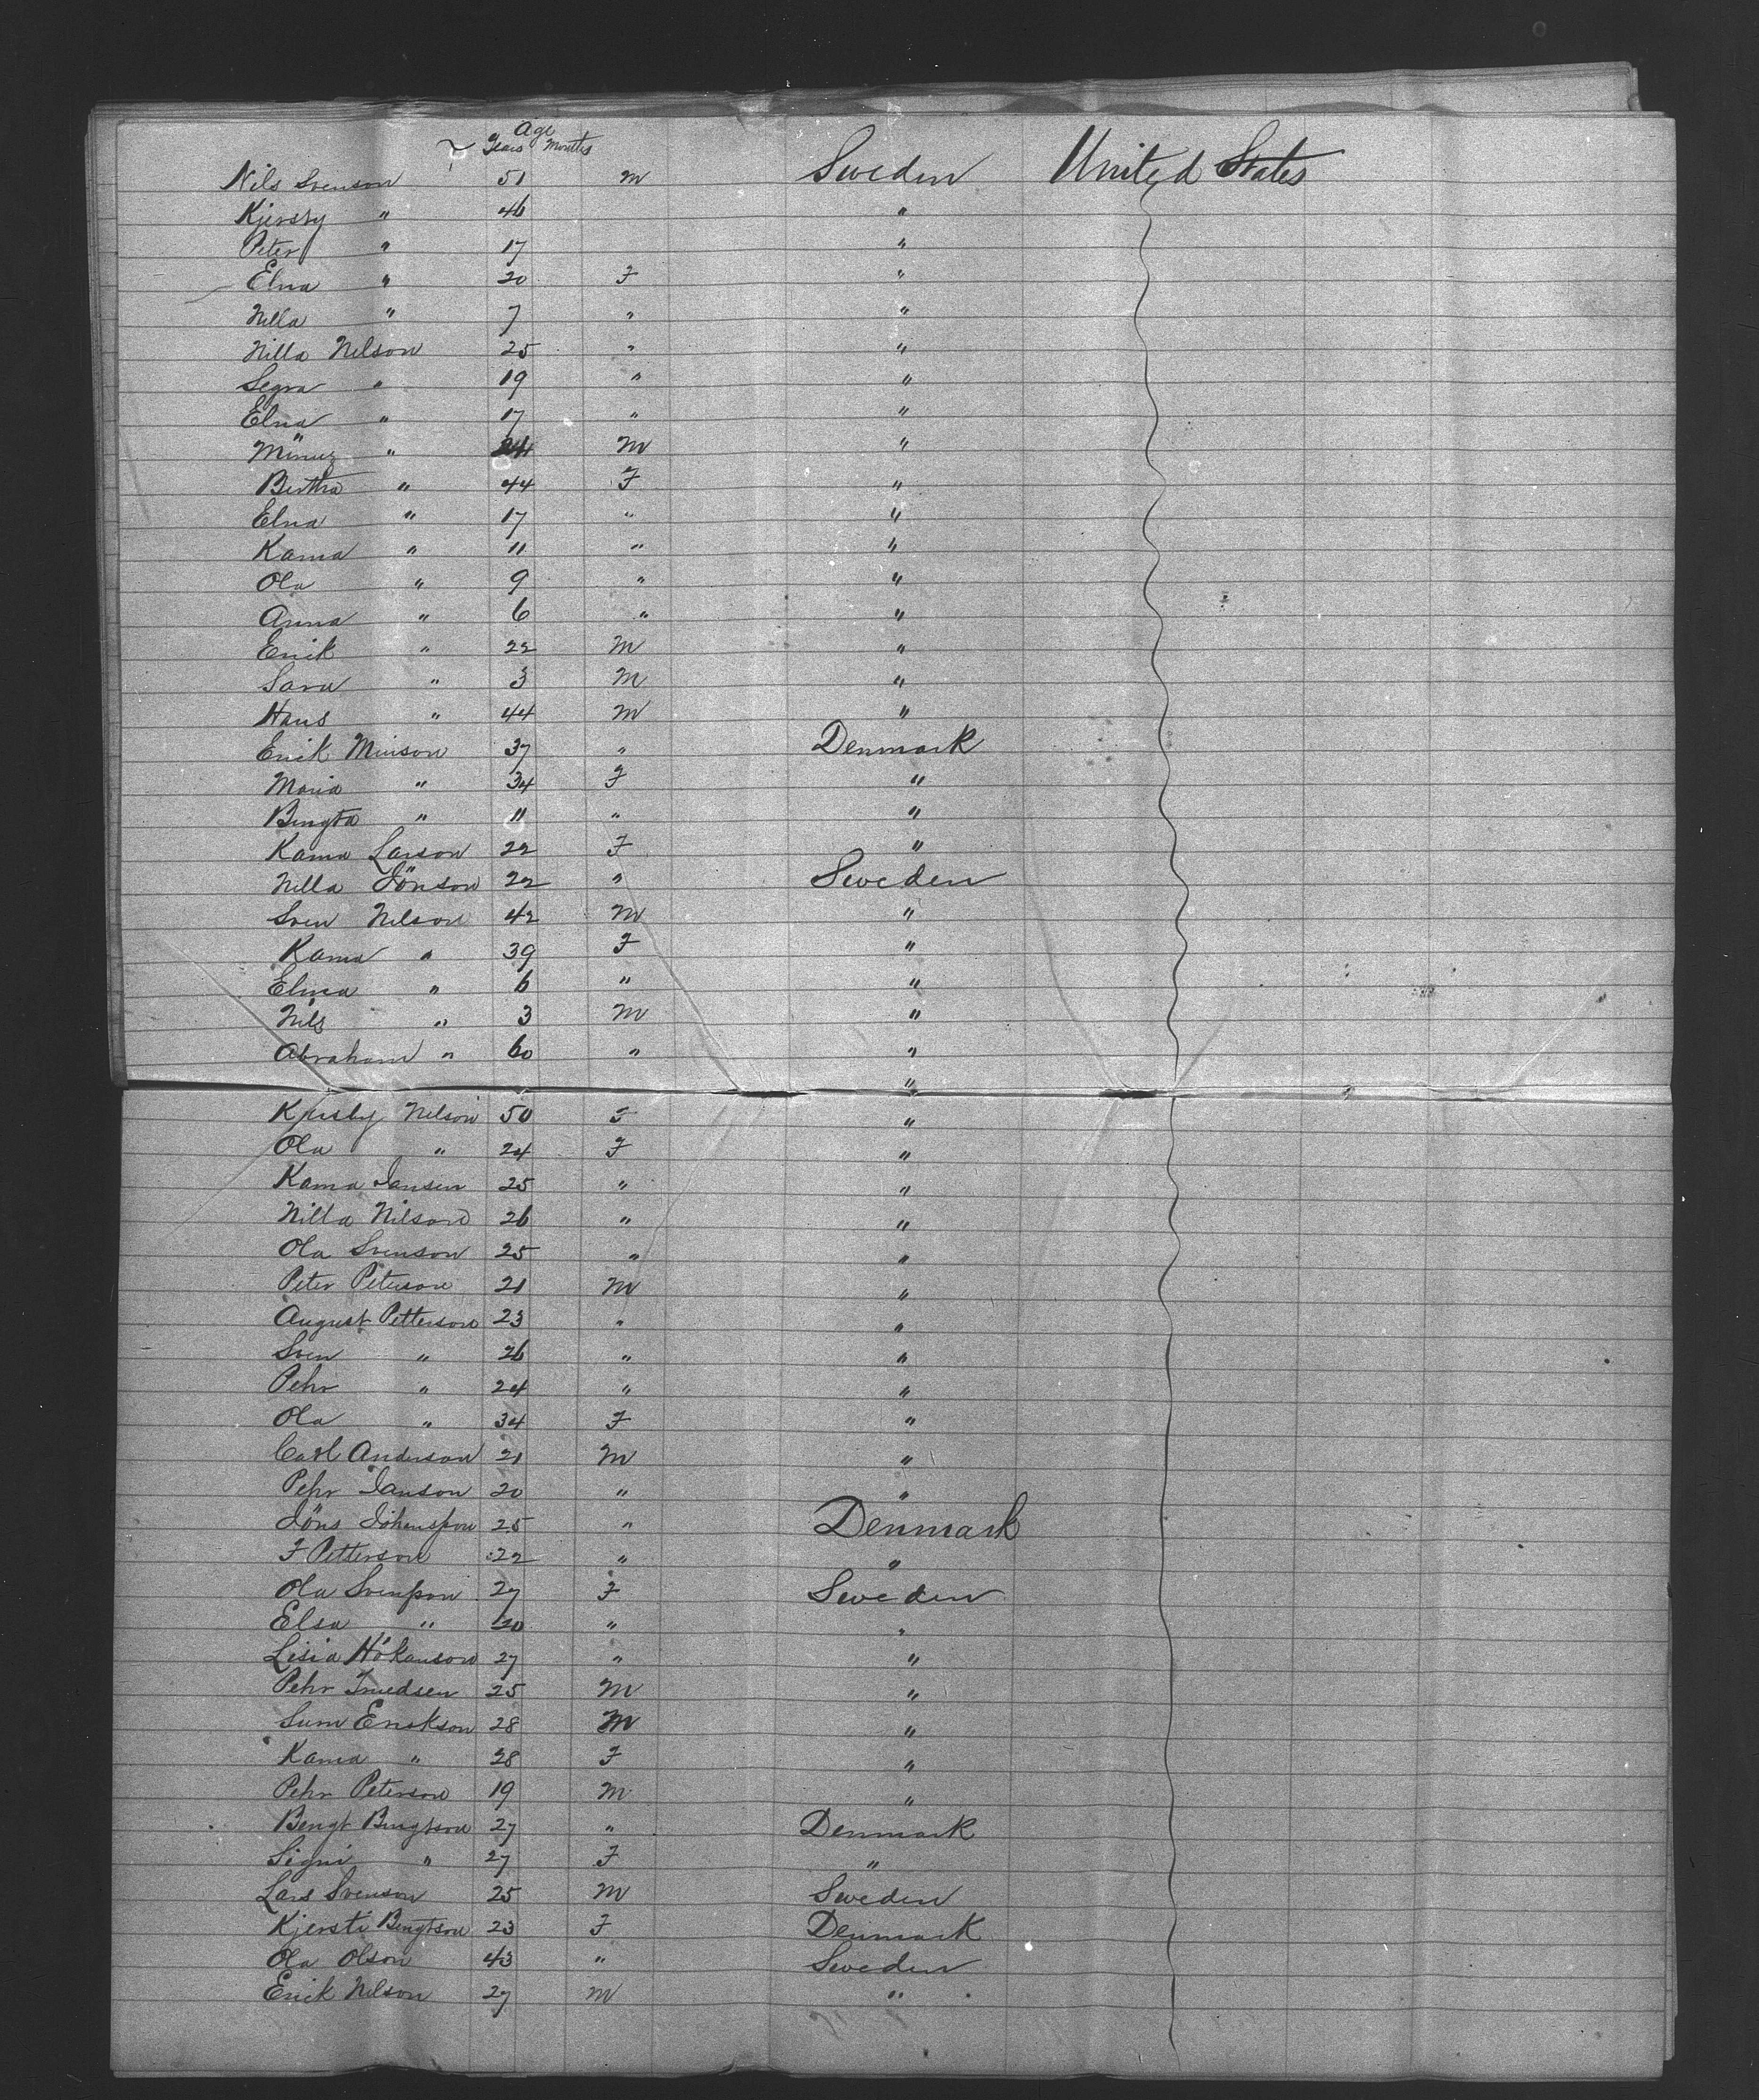 Age
Years Months
Nils Svenson 51 M Sweden United States
Kjersty " 46 "
Peter " 17 "
Elna " 20 F "
Nella " 7 " "
Nilla Nelson 25 " "
Segra " 19 " "
Elna " 17 " "
" 24 M "
Bertha " 44 F "
Elna " 17 " "
Kama " 11 " "
Ola " 9 " "
Anna " 6 " "
Erik " 22 M "
Sara " 3 M "
Hans " 44 M "
Erik Minson 37 " Denmark
Maria " 34 F "
Bengta " 11 " "
Kama Larson 22 F "
Nella Jönson 22 " Sweden
Sven Nelson 42 M "
Kama " 39 F "
Elma " 6 " "
Nils " 3 M "
Abraham " 60 " "
"
Kjersby Nelson 50 F "
Ola " 24 F "
Kama Jansen 25 " "
Nilla Nilson 26 " "
Ola Svenson 25 " "
Peter Peterson 21 M "
August Petterson 23 " "
Sven " 26 " "
Pehr " 24 " "
Ola " 34 F "
Carl Anderson 21 M "
Pehr Janson 20 " "
Jöns 25 " Denmark
F Petterson 22 " "
Ola Svenson 27 F Sweden
Elsa " 20 " "
Lisia Hökanson 27 " "
Pehr 25 M "
Erickson 28 M "
Kama " 28 F "
Pehr Peterson 19 M "
Bengt Bengtson 27 " Denmark
Signi " 27 F "
Lars Svenson 25 M Sweden
Kjersti Bengtson 23 F Denmark
Ola Olson 43 " Sweden
Erick Nelson 27 M "